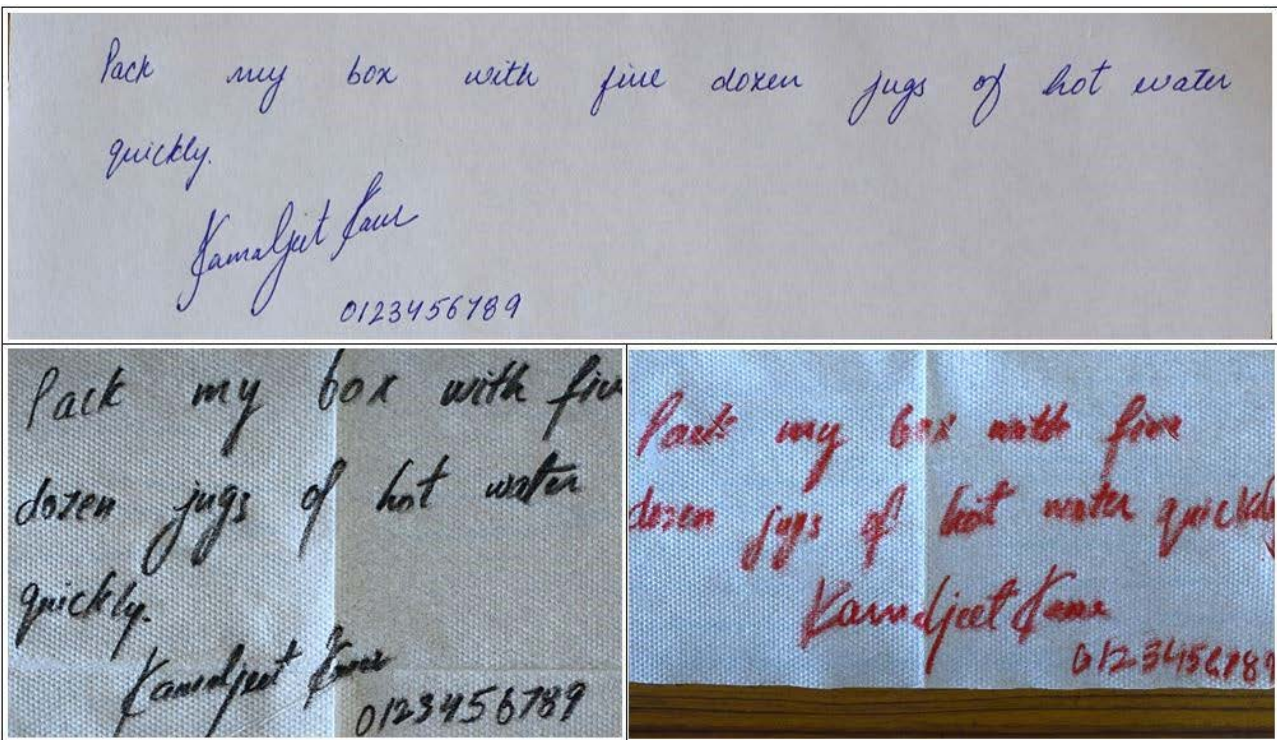 Pack my box with five dozen jugs of hot water
quickly.
Kamaljeet Kaur
0123456789
Pack my box with five
dozen jugs of hot water
quickly.
Kamaljeet Kaur
0123456789
Pack my box with five
dozen jugs of hot water quickly
Kamaljeet Kaur
0123456789